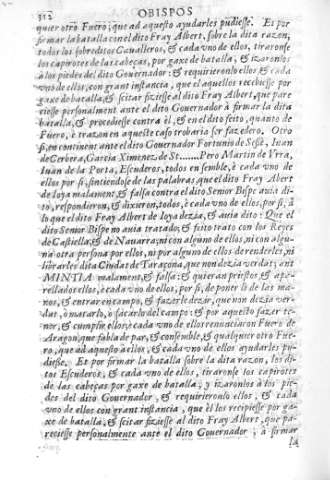 312 OBISPOS
quier otro Fuero, que ad aquesto ayudarles pudiesse. Es por
firmar la batalla con el dito Fray Albert, sobre la dita razon,
todos los sobreditos Cavalleros, & cada vno de ellos, tiraronse
los capirotes de las cabeças, por gaxe de batalla, & izaronlos
à los piedes del dito Governador: & requirieronlo ellos, & cada
vno de ellos, con grant instancia, que el aquellos recibiesse por
gaxe de batalla, & scitar fiziesse al dito Fray Albert, que pare
ciesse personalment ante el dito Governador à firmar la dita
batalla, & prociediesse contra èl, & en el dito feito, quanto de
Fuero, è razon en aqueste caso trobaria ser fazedero. Otro
si, en continent ante el dito Governador Fortunio de Sesse, Iuan
de Cerbera, Garcia Ximenez de St...... Pero Martin de Vrra,
Iuan de la Porta, Escuderos, todos en semble, è cada vno de
ellos por si, sintiendose de las palauras, que el dito Fray Albert
de loya malament, & falsa contra el dito Senior Bispe auia di-
to, respondieron, & dixieron, todos, è cada vno de ellos, por si, à
lo que el dito Fray Albert de loya dezia, & auia dito: Que el
dito Senior Bispe no auia tratado, & feito trato con los Reyes
de Castiella, & de Nauarra, ni con alguno de ellos, ni con algu-
na otra persona por ellos, ni por alguno de ellos de renderles, ni
librarles dita Ciudat de Taraçona, que non dezia verdat; ant
MINTIA malament, & falsa: & querian pristos & ape-
rellados ellos, è cada vno de ellos, por si, de poner li de las ma-
nos, & entrar en campo, & fazerle dezir, que non dezia ver-
dat, ò matarlo, ò sacarlo del campo: & por aquesto fazer te-
ner, & cumplir ellos, è cada vno de ellos renunciaron Fuero de
Aragon, que fabla de par, & consemble, & qualquier otro Fue-
ro, que ad aquesto à ellos, & cada vno de ellos ayudarles pu-
diesse. Es por firmar la batalla sobre la dita razon, los di-
tos Escuderos, & cada vno de ellos, tiraronse los capirotes
de las cabeças por gaxe de batalla; y izaronlos à los pie-
des del dito Governador, & requirieronlo ellos, & cada
vno de ellos con grant instancia, que èl los recipiesse por ga-
xe de batalla; & scitar fiziesse al dito Fray Albert, que pa-
reciesse personalmente ante el dito Governador, à firmar
la